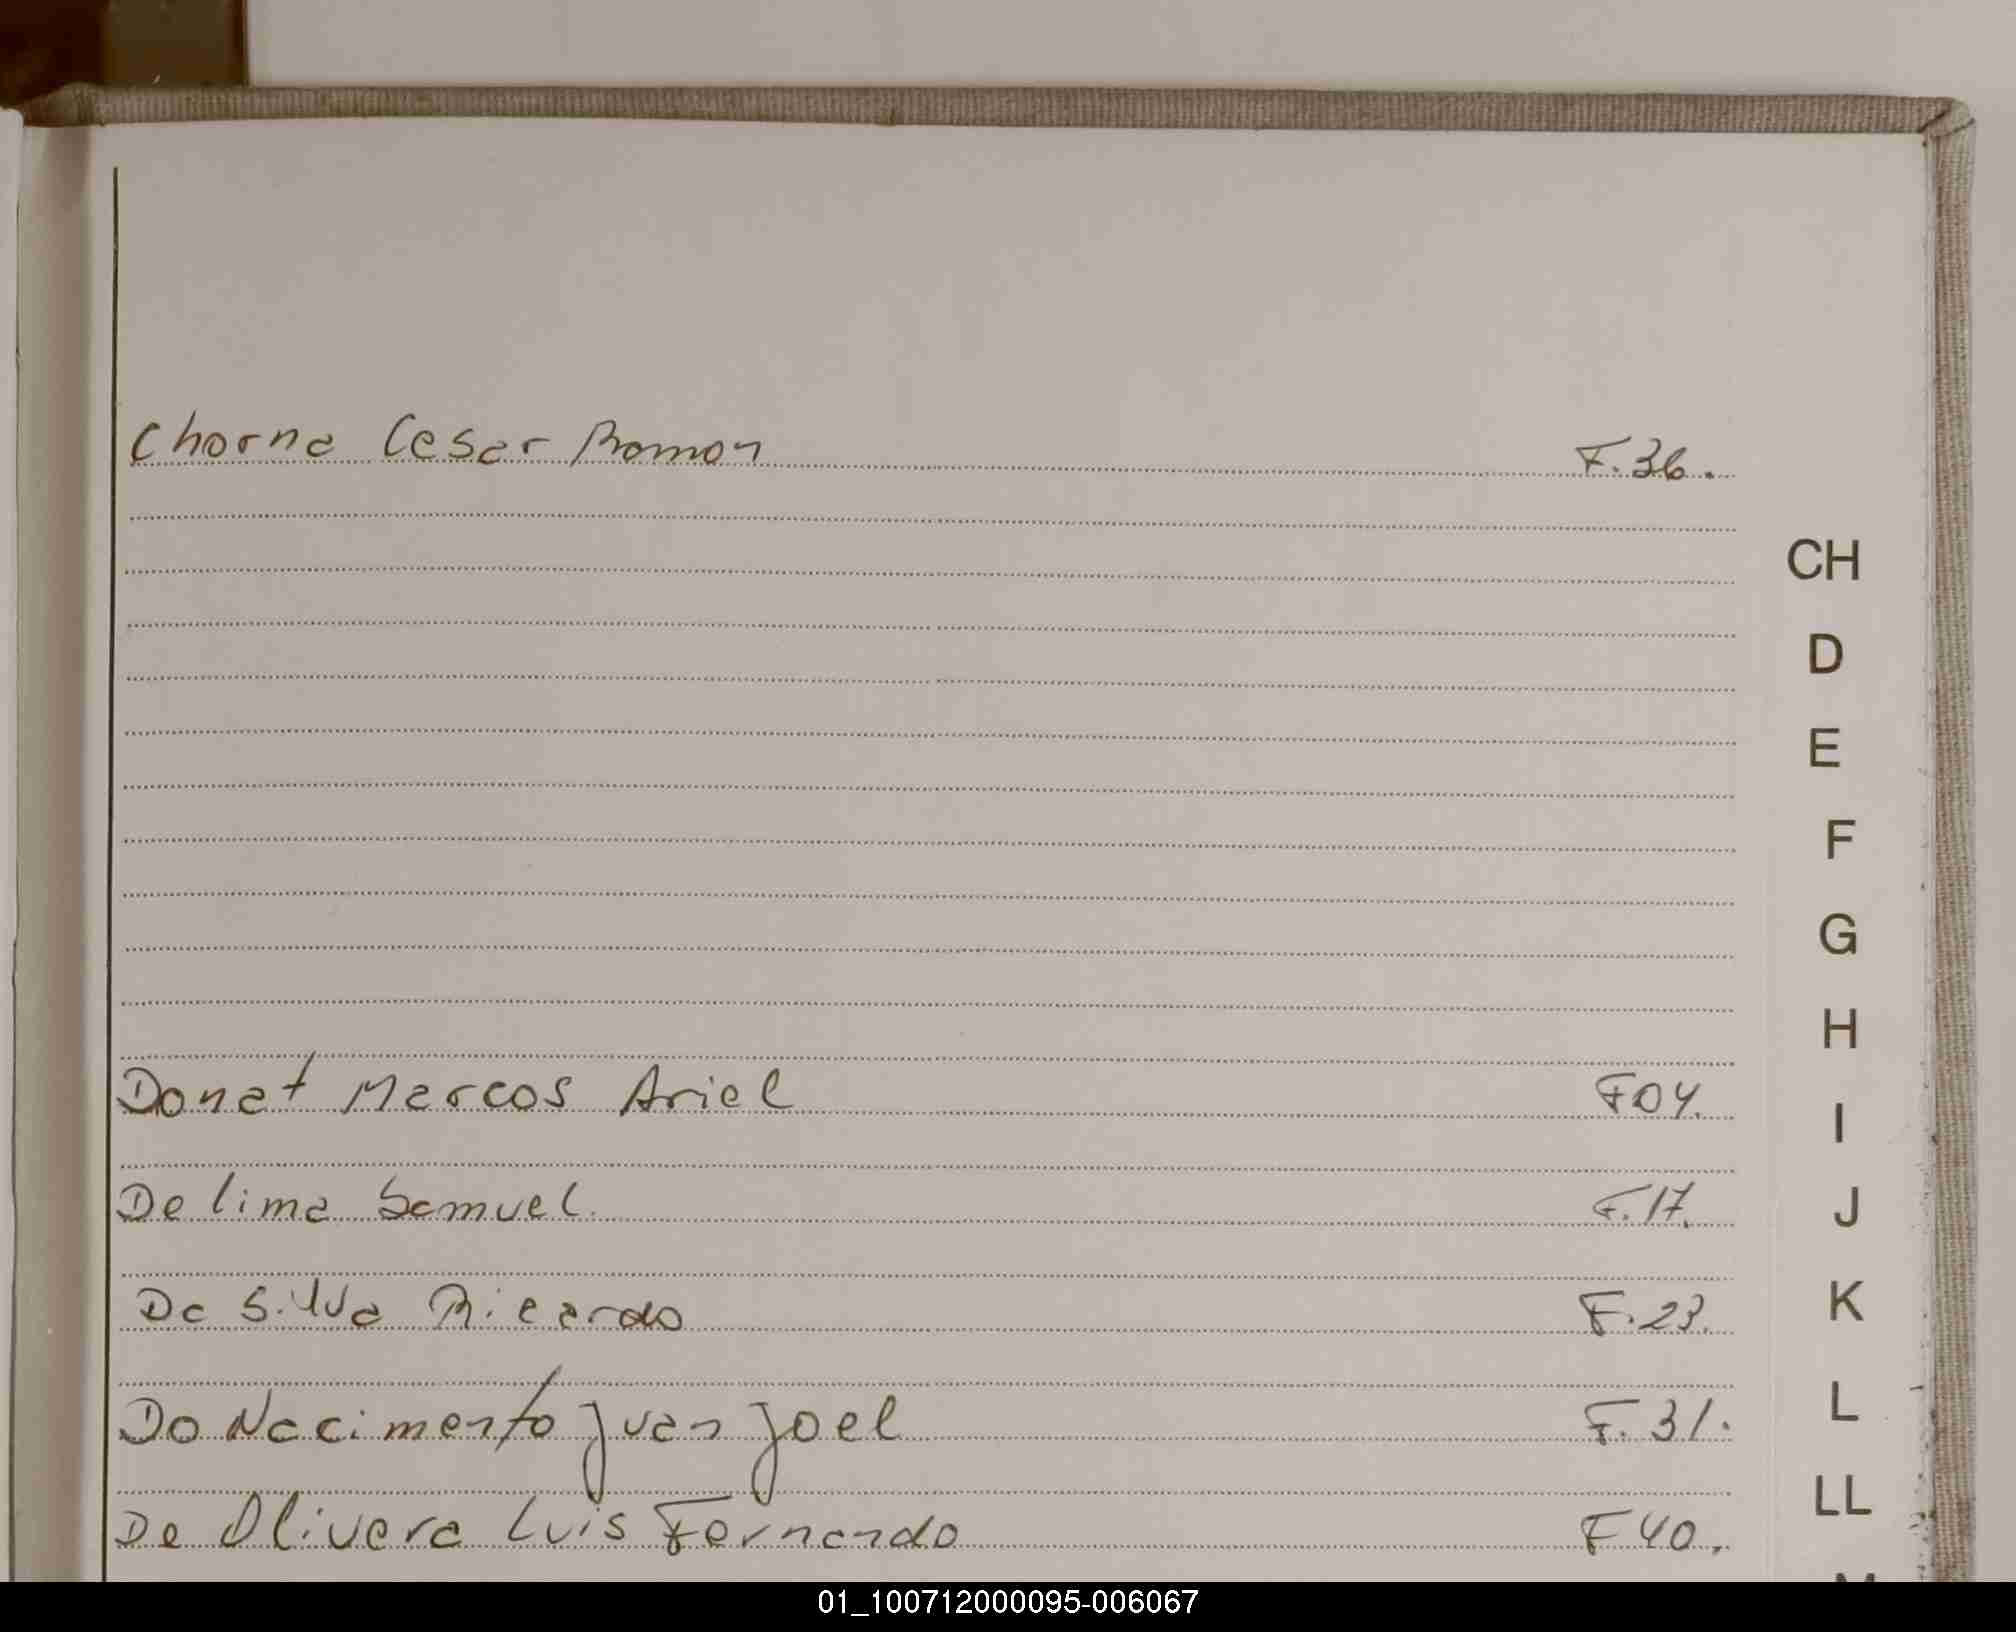 Chorna Cesar Ramon F.36.
CH
D
E
F
G
H
Donat Marcos Ariel F04.
I
De lima Samuel. F.17.
J
Da Silva Ricardo F.23.
K
Do Nacimento Juan Joel F.31.
L
LL
De Olivera Luis Fernando F40.
01_100712000095-006067